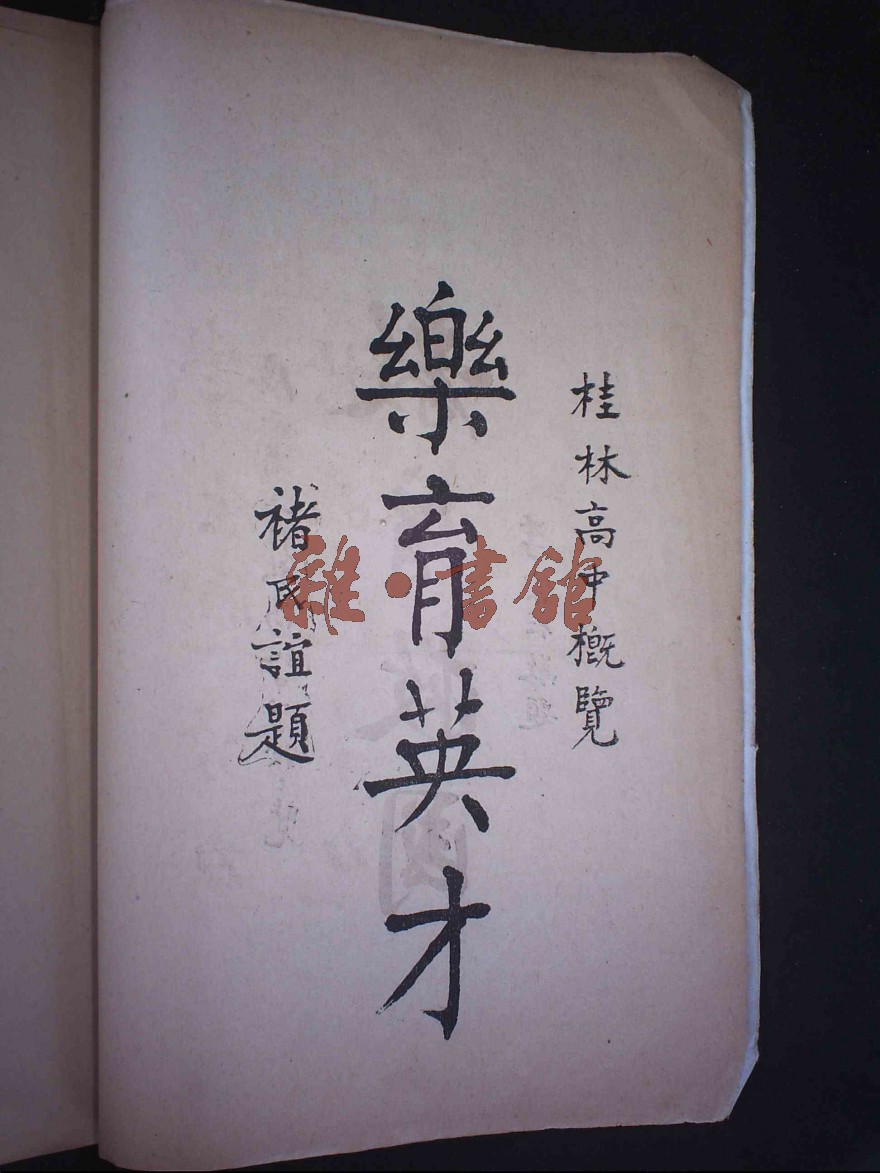 桂林高中概覽
樂育英才
褚民誼題
雜·書館